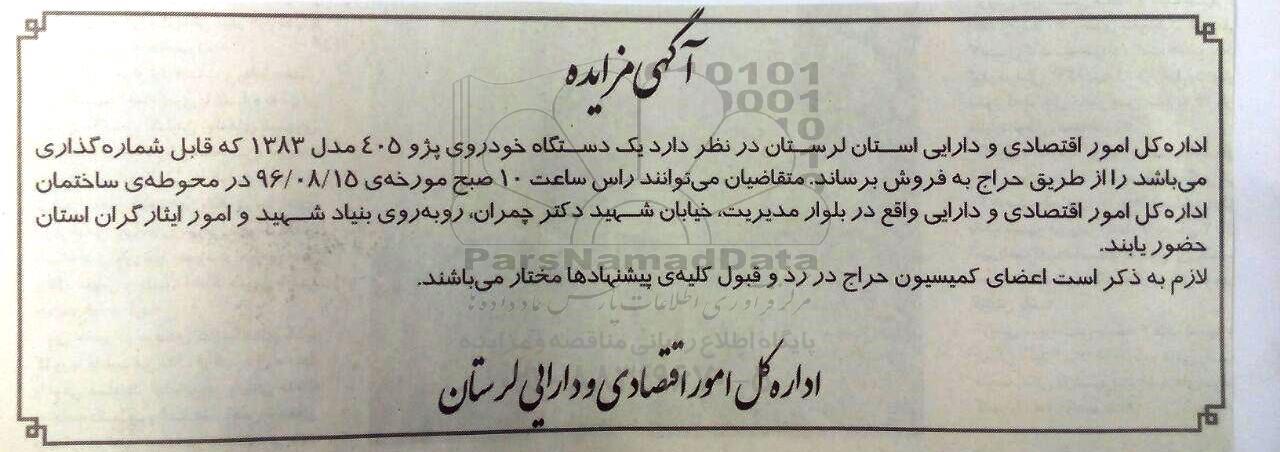 آگهی مزایده
اداره کل امور اقتصادی و دارایی استان لرستان در نظر دارد یک دستگاه خودروی پژو ٤٠٥ مدل ۱۳۸۳ که قابل شماره گذاری
می‌باشد را از طریق حراج به فروش برساند. متقاضیان می‌توانند راس ساعت ۱۰ صبح مورخه‌ی ۹۶/۰۸/۱۵ در محوطه‌ی ساختمان
اداره کل امور اقتصادی و دارایی واقع در بلوار مدیریت، خیابان شهید دکتر چمران، روبه‌روی بنیاد شهید و امور ایثارگران استان
حضور یابند.
ParsNamadData
لازم به ذکر است اعضای کمیسیون حراج در رد و قبول کلیه‌ی پیشنهادها مختار می‌باشند.
مرکز فرآوری اطلاعات پارس نماد داده ها
پایگاه اطلاع رسانی مناقصه و مزایده
اداره کل امور اقتصادی و دارایی لرستان